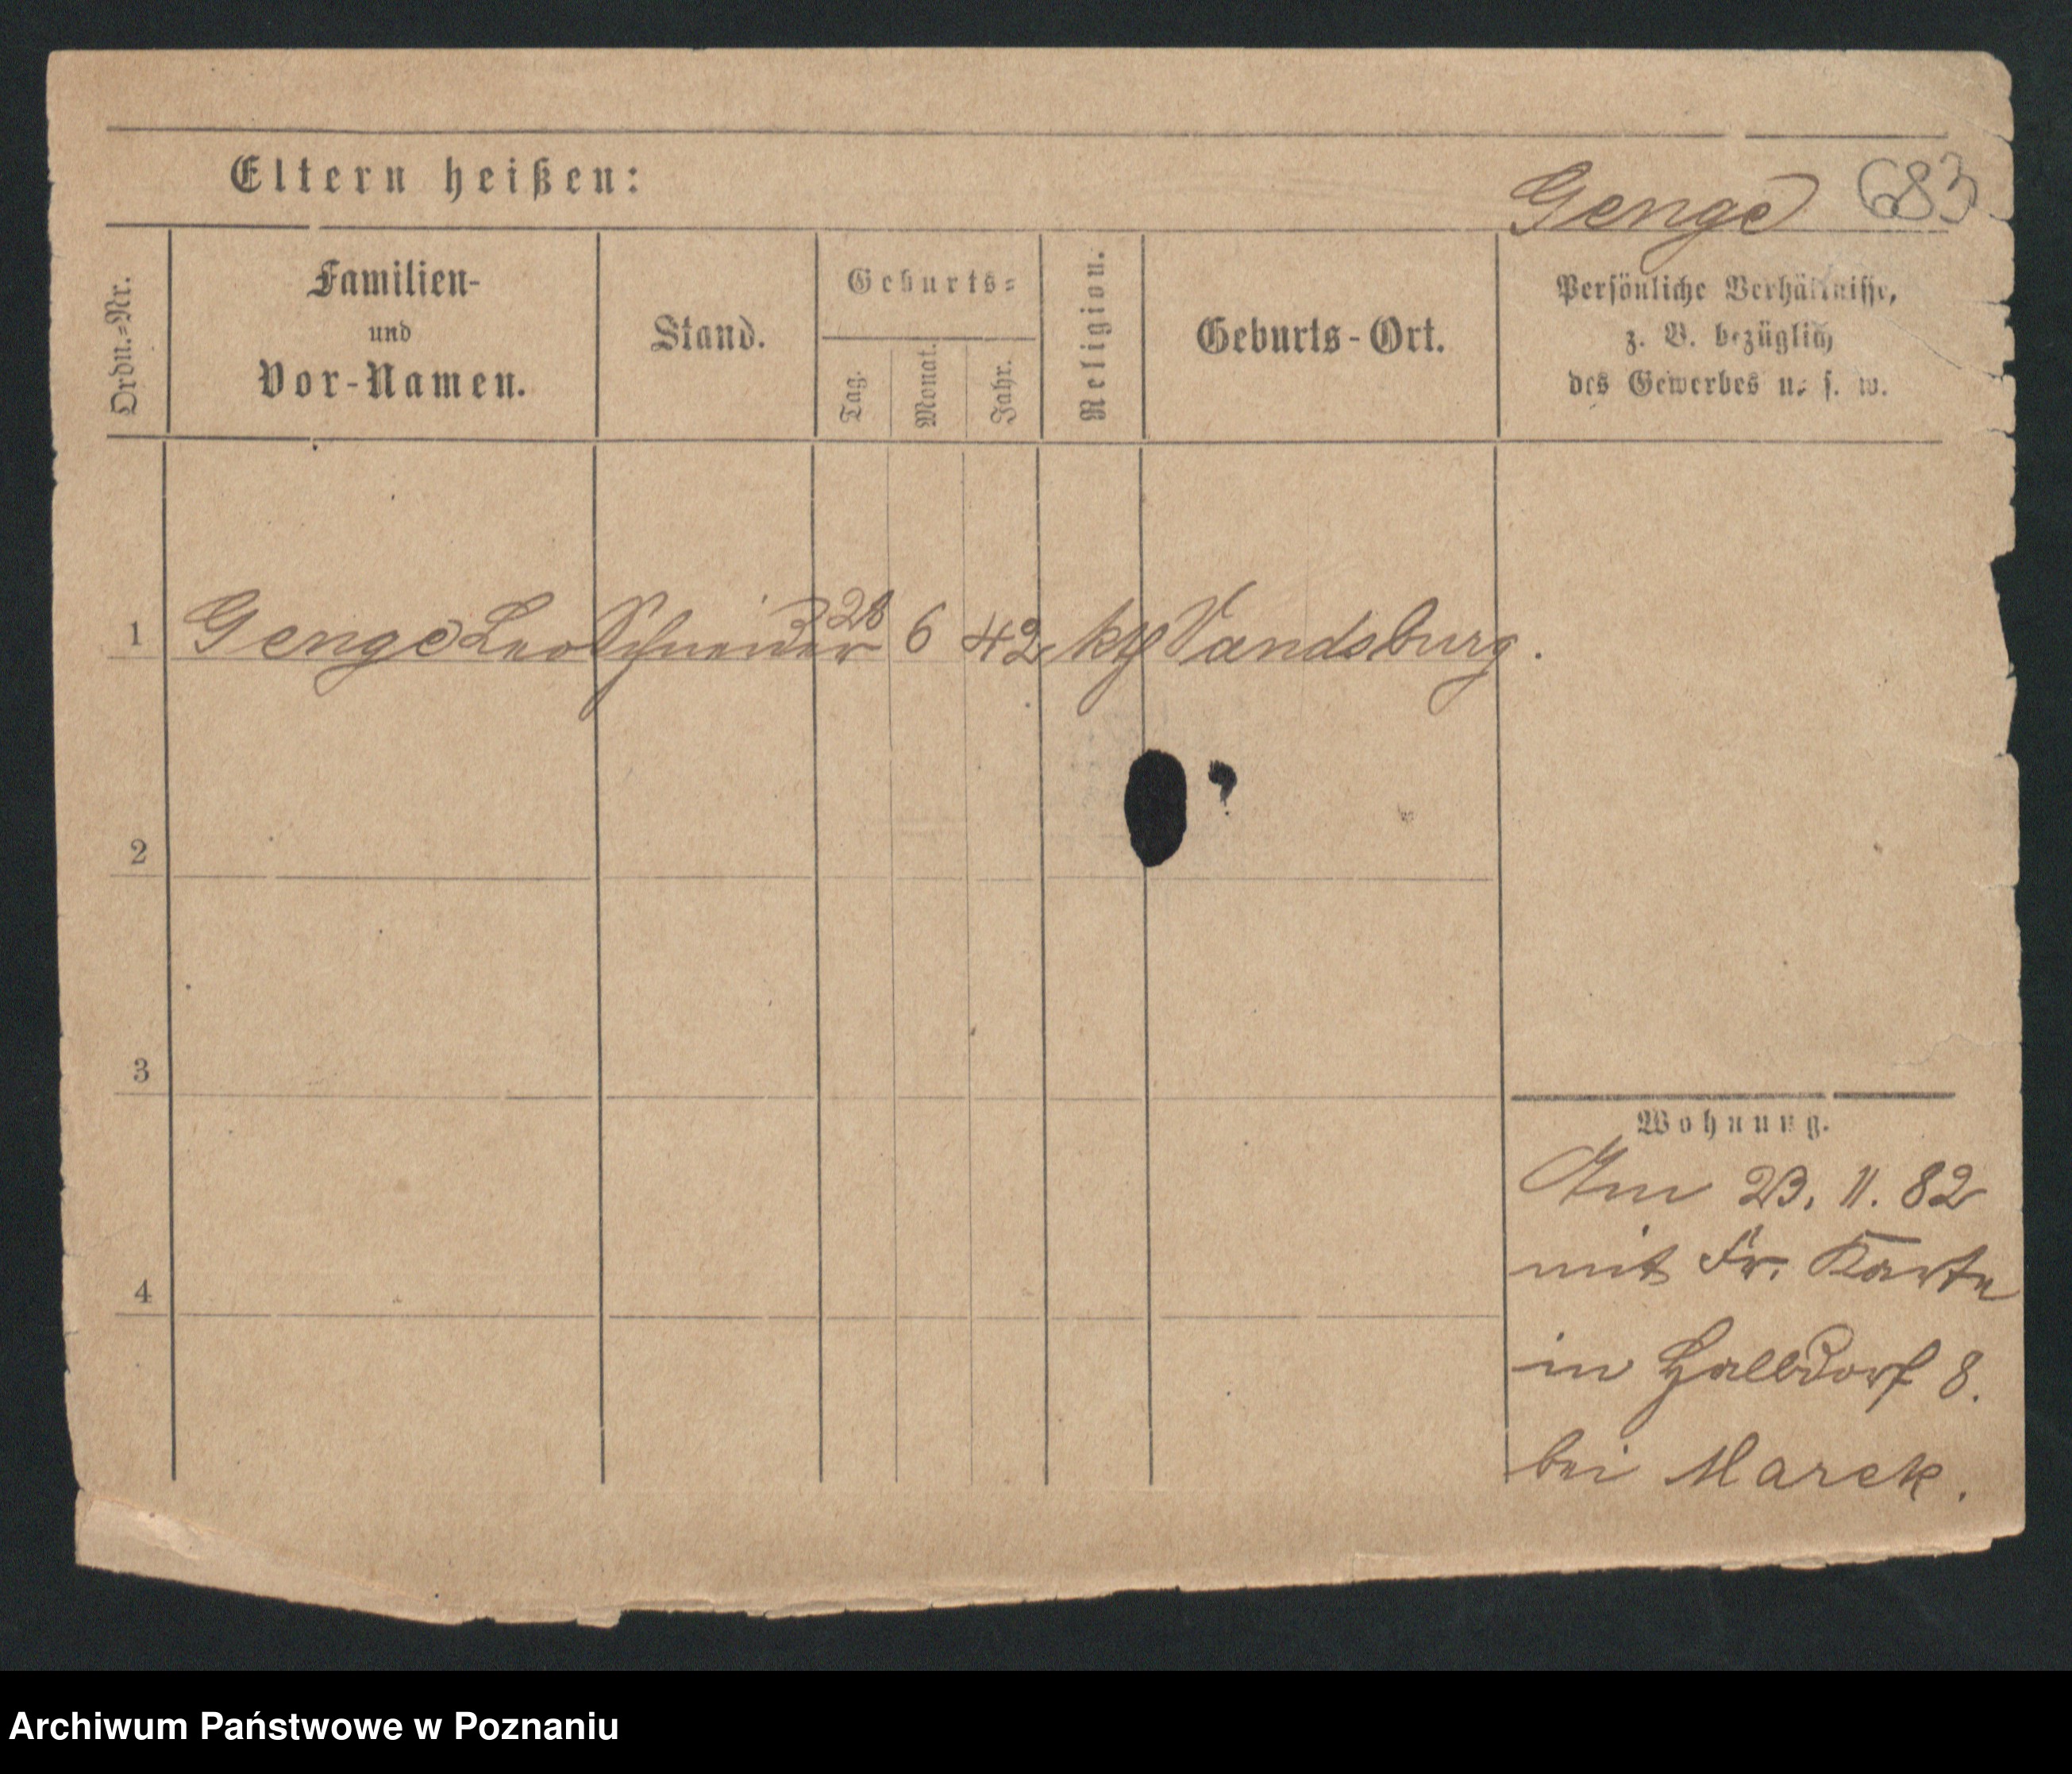 Eltern heißen:
Genge 683
Ordn.=Nr.
Familien-
und
Vor-Namen.
Stand.
Geburts=
Tag.
Monat.
Jahr.
Religion.
Geburts-Ort.
Persönliche Verhältnisse,
z. B. bezüglich
des Gewerbes u. s. w.
1 Genge Leo Schneider 28 6 42 kth Vandsburg.
2
3
4
Wohnung.
Am 23. 11. 82
mit Fr. Karte
in Halbdorf 8.
bei Marek.
Archiwum Państwowe w Poznaniu